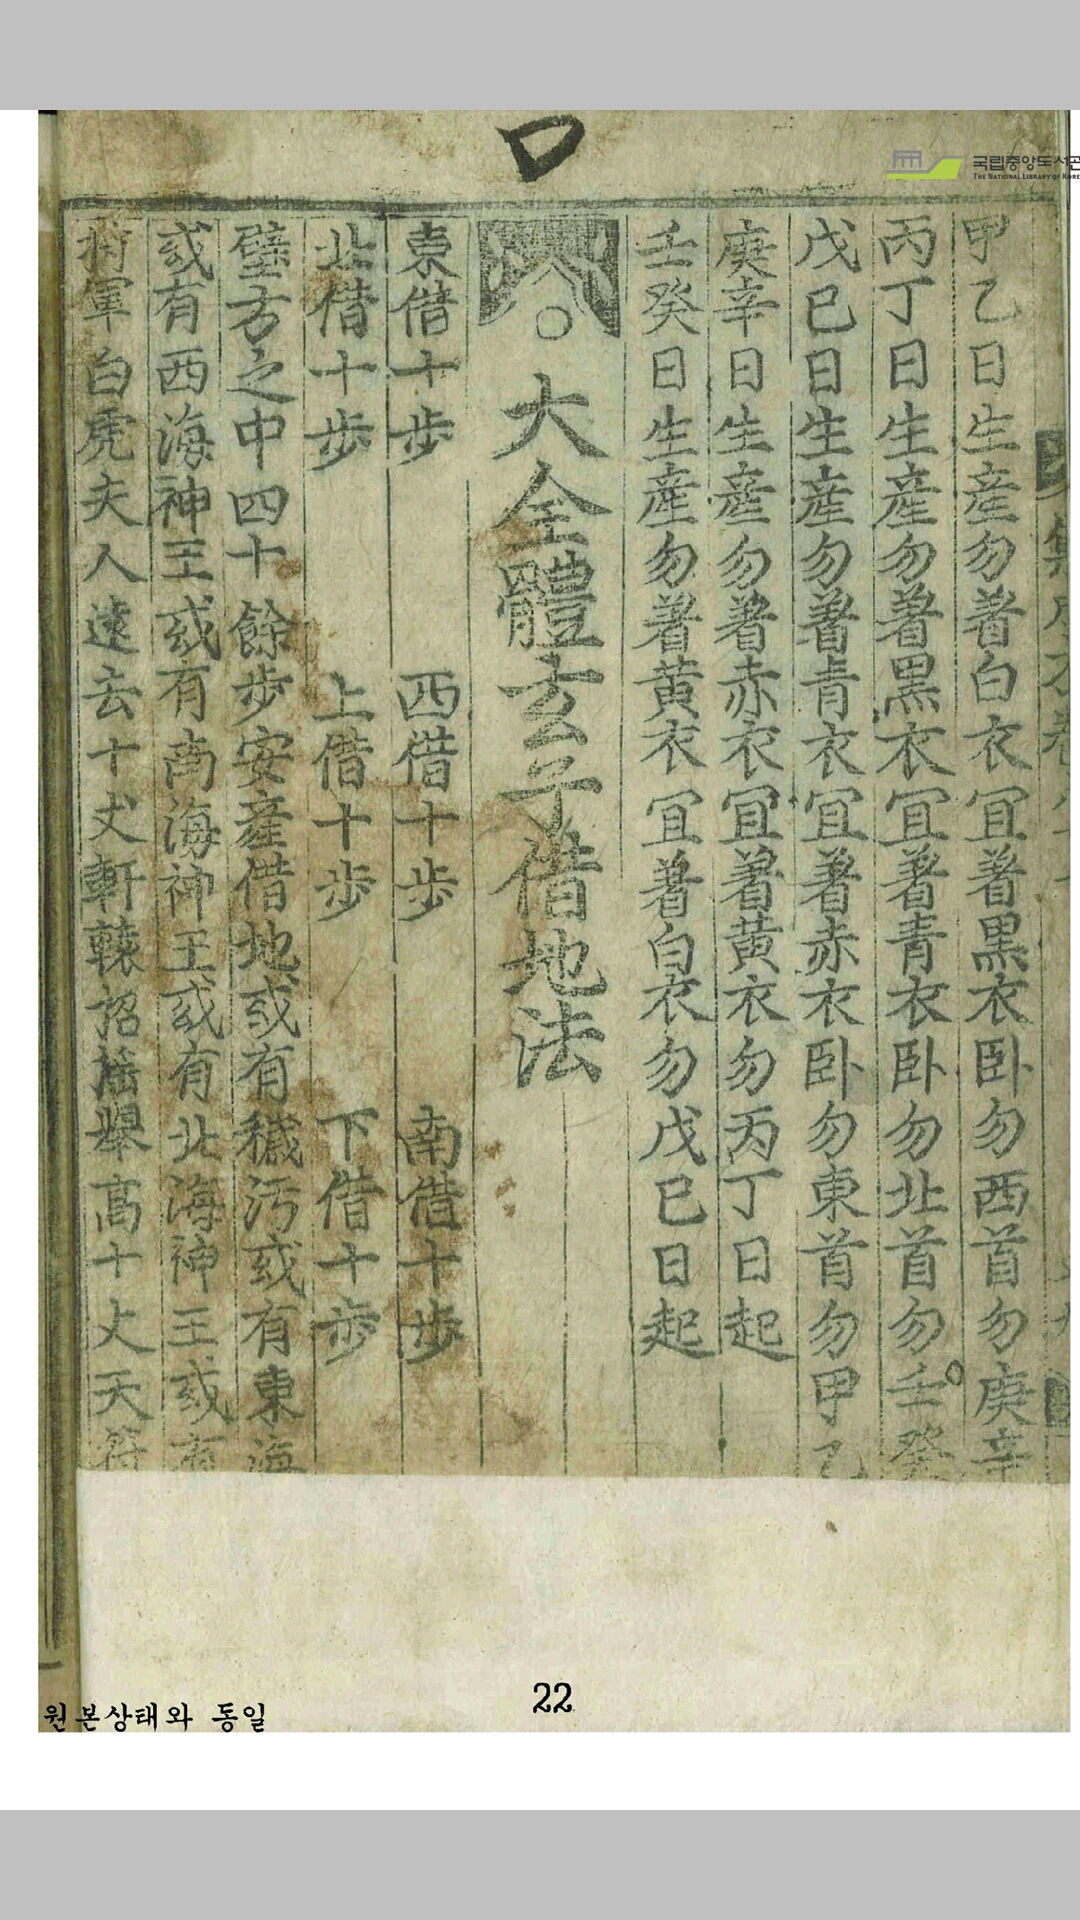 국립중앙도서관
THE NATIONAL LIBRARY OF KORE
甲乙日生産勿著白衣冝著黒衣卧勿西首勿庚辛
丙丁日生産勿著黒衣冝著青衣卧勿北首勿壬癸
戊巳日生産勿著青衣冝著赤衣卧勿東首勿甲乙
庚辛日生産勿著赤衣冝著黄衣勿丙丁日起
壬癸日生産勿著黄衣冝著白衣勿戊巳日起
大全體玄子借地法
東借十步 西借十步 南借十步
北借十步 上借十步 下借十步
壁方之中四十餘步安産借地或有穢汚或有東海
或有西海神王或有南海神王或有北海神王或有
將軍白虎夫人遠去十丈軒轅招搖舉高十丈天符
22
원본상태와 동일